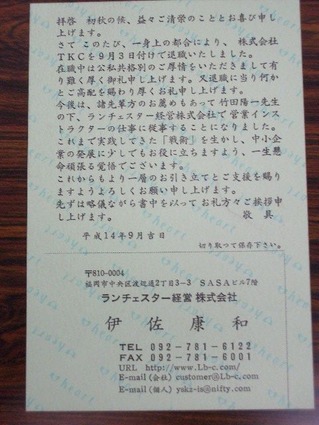 拝啓 初秋の候、益々ご清祭のこととお喜び申し
上げます。
さて このたび、一身上の都合により、株式会社
TKCを9月3日付けで退職いたしました。
在職中は公私共格別のご厚情をいただきまして有
り難く厚く御礼申し上げます。又退職に当り何か
とご高配を賜わり厚くお礼申し上げます。
今後は、諸先輩方のお薦めもあって竹田陽一先生
の下、ランチェスター経営株式会社で営業インス
トラクターの仕事に従事することになりました。
これまで実践してきた「戦術」を生かし、中小企
業の発展に少しでもお役に立ちますよう、一生懸
命頑張る覚悟でございます。
これからもより一層のお引き立てとご支援を賜り
ますようよろしくお願い申し上げます。
先ずは略儀ながら書中を以ってお礼方々ご挨拶申
し上げます。
敬具
平成14年9月吉日
切り取って保存下さい。
〒810-0004
福岡市中央区渡辺通2丁目3-3 SASAビル7階
ランチェスター経営 株式会社
伊佐康和
TEL 092-781-6122
FAX 092-781-6001
URL http://www.Lb-c.com/
E-mail(会社) customer@Lb-c.com
E-mail(個人) yska-is@nifty.com